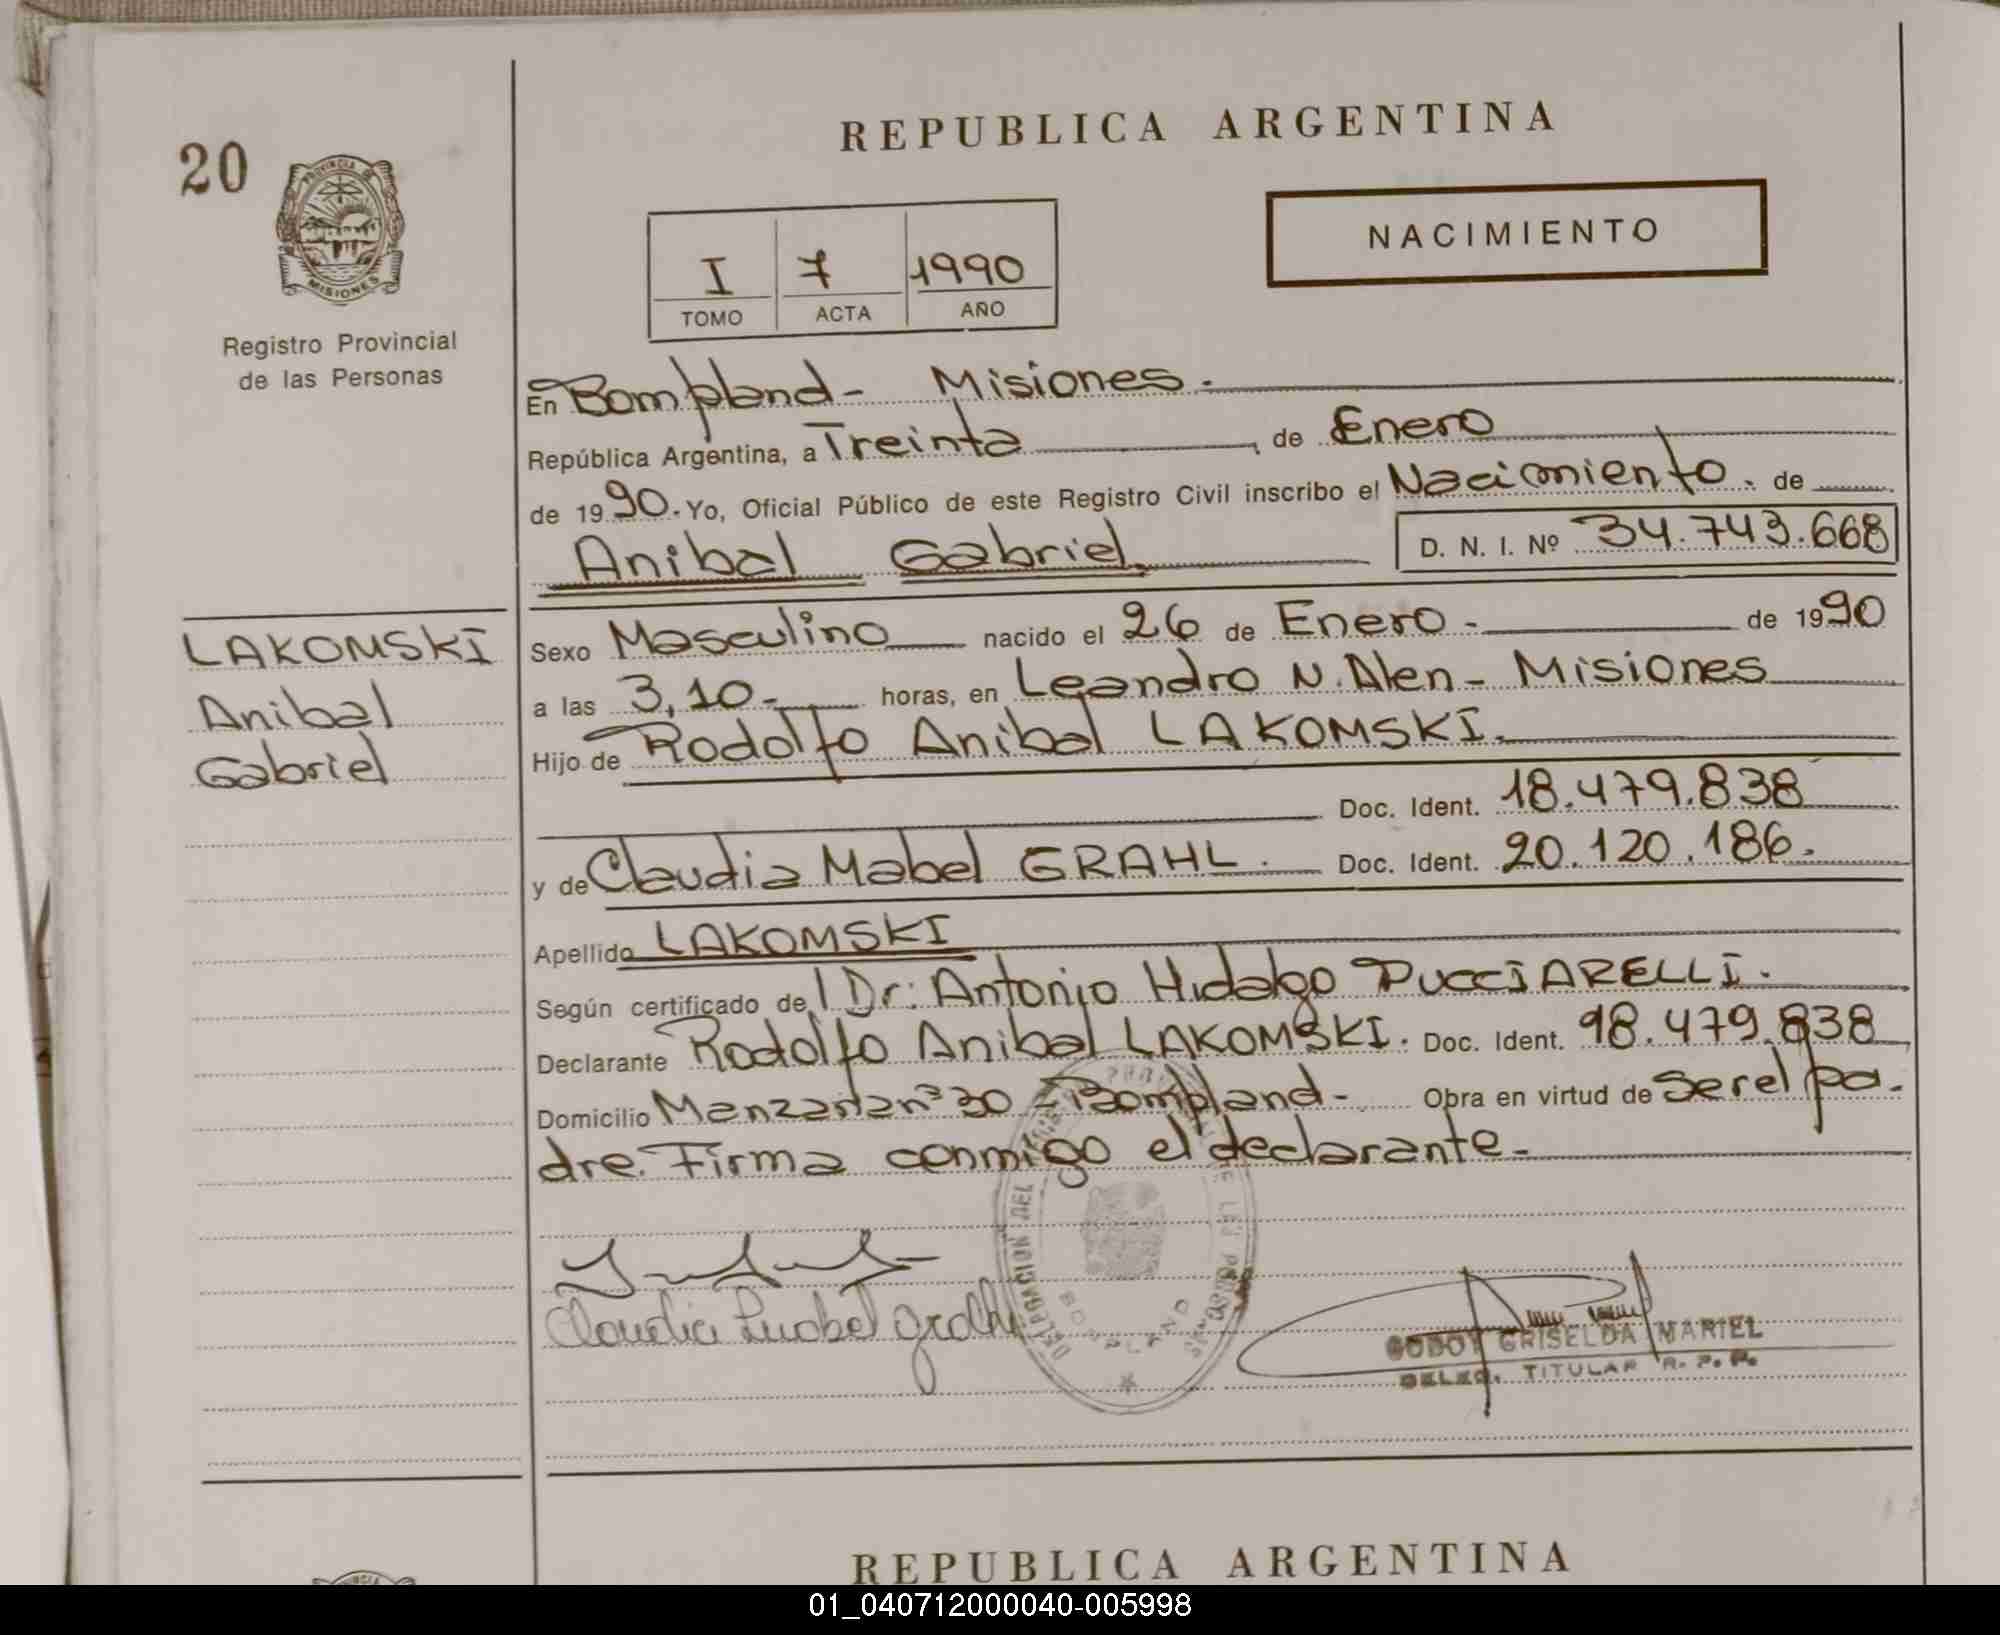 REPUBLICA ARGENTINA
20
PROVINCIA DE
MISIONES
Registro Provincial
de las Personas
I 7 1990
TOMO ACTA AÑO
NACIMIENTO
En Bompland - Misiones.
República Argentina, a Treinta, de Enero
de 1990. Yo, Oficial Público de este Registro Civil inscribo el Nacimiento. de
Anibal Gabriel. D. N. I. Nº 34.743.668
LAKOMSKI
Anibal
Gabriel
Sexo Masculino nacido el 26 de Enero - de 1990
a las 3,10- horas, en Leandro N. Alen - Misiones
Hijo de Rodolfo Anibal LAKOMSKI.
Doc. Ident. 18.479.838
y de Claudia Mabel GRAHL. Doc. Ident. 20.120.186.
Apellido LAKOMSKI
Según certificado de Dr: Antonio Hidalgo PUCCIARELLI.
Declarante Rodolfo Anibal LAKOMSKI. Doc. Ident. 18.479.838
Domicilio Manzana nº 30 - Bompland - Obra en virtud de ser el pa-
dre. Firma conmigo el declarante.-
DELEGACION DEL
BONPLAND
GODOY GRISELDA MARIEL
DELEG. TITULAR R. P. P.
REPUBLICA ARGENTINA
01_040712000040-005998